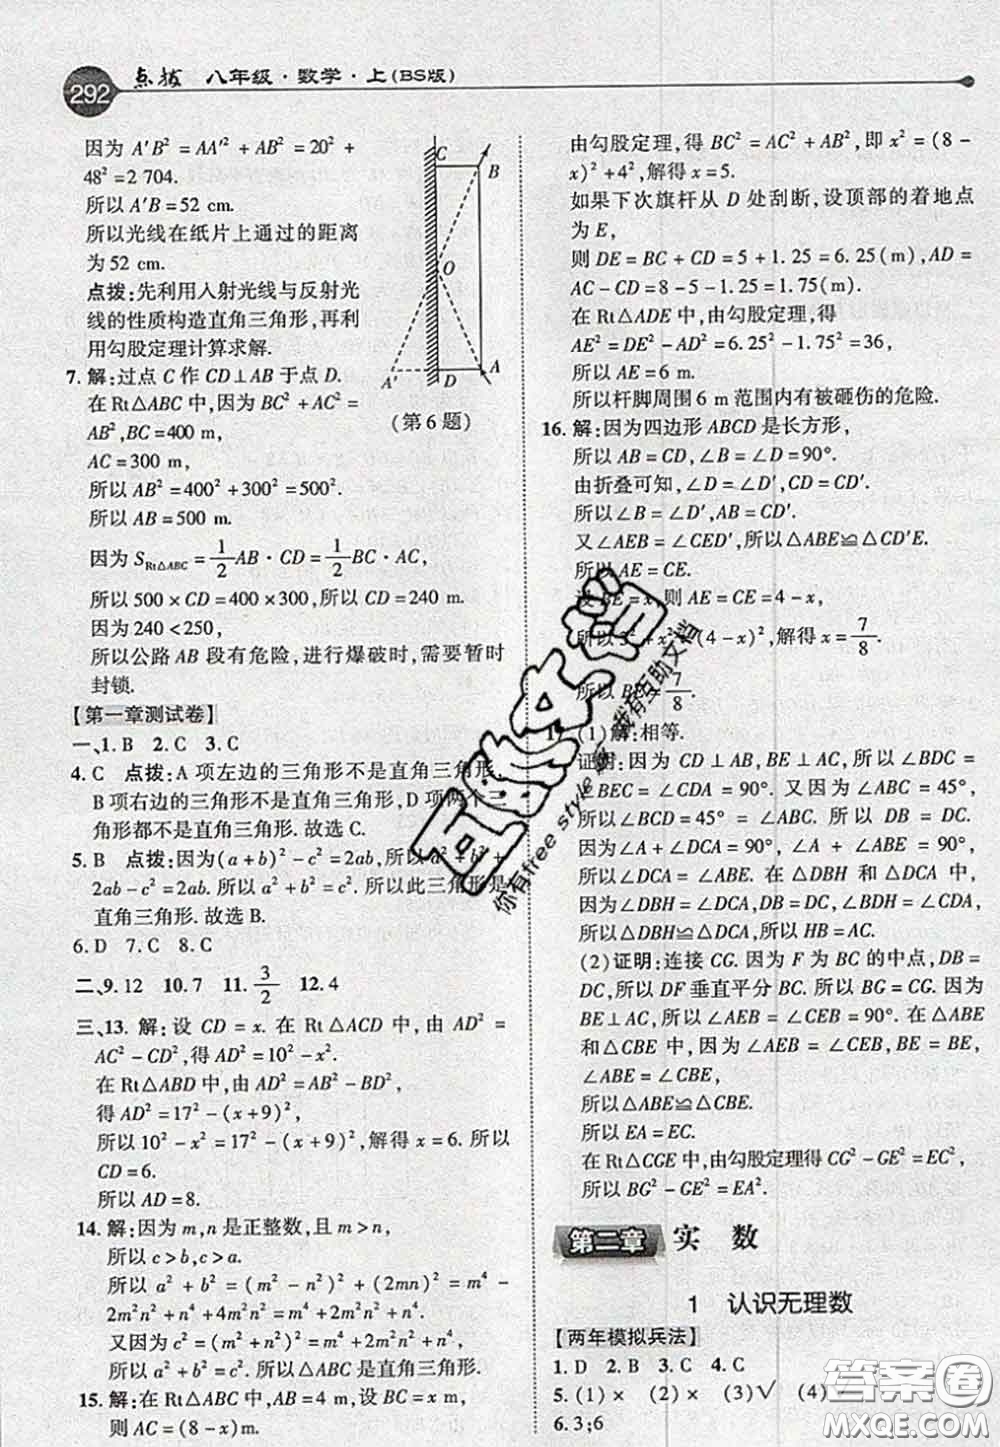 292 点拨 八年级·数学·上(BS版)
因为 A′B² = AA′² + AB² = 20² +
48² = 2 704.
所以 A′B = 52 cm.
所以光线在纸片上通过的距离
为 52 cm.
点拨:先利用入射光线与反射光
线的性质构造直角三角形,再利
用勾股定理计算求解.
C
B
O
A′
D
A
(第 6 题)
7. 解:过点 C 作 CD⊥AB 于点 D.
在 Rt△ABC 中,因为 BC² + AC² =
AB², BC = 400 m,
AC = 300 m,
所以 AB² = 400² + 300² = 500².
所以 AB = 500 m.
因为 S Rt△ABC = 1/2 AB · CD = 1/2 BC · AC,
所以 500 × CD = 400 × 300, 所以 CD = 240 m.
因为 240 < 250,
所以公路 AB 段有危险,进行爆破时,需要暂时
封锁.
【第一章测试卷】
一、1. B 2. C 3. C
4. C 点拨:A 项左边的三角形不是直角三角形,
B 项右边的三角形不是直角三角形,D 项两个三
角形都不是直角三角形.故选 C.
5. B 点拨:因为(a + b)² - c² = 2ab,所以 a² + b² +
2ab - c² = 2ab. 所以 a² + b² = c². 所以此三角形是
直角三角形.故选 B.
6. D 7. C 8. C
二、9. 12 10. 7 11. 3/2 12. 4
三、13. 解:设 CD = x. 在 Rt△ACD 中,由 AD² =
AC² - CD²,得 AD² = 10² - x².
在 Rt△ABD 中,由 AD² = AB² - BD²,
得 AD² = 17² - (x + 9)²,
所以 10² - x² = 17² - (x + 9)²,解得 x = 6. 所以
CD = 6.
所以 AD = 8.
14. 解:因为 m,n 是正整数,且 m > n,
所以 c > b,c > a.
所以 a² + b² = (m² - n²)² + (2mn)² = m⁴ -
2m²n² + n⁴ + 4m²n² = m⁴ + 2m²n² + n⁴.
又因为 c² = (m² + n²)² = m⁴ + 2m²n² + n⁴,
所以 a² + b² = c². 所以△ABC 是直角三角形.
15. 解:在 Rt△ABC 中,AB = 4 m,设 BC = x m,
则 AC = (8 - x) m.
由勾股定理,得 BC² = AC² + AB²,即 x² = (8 -
x)² + 4²,解得 x = 5.
如果下次旗杆从 D 处刮断,设顶部的着地点
为 E,
则 DE = BC + CD = 5 + 1. 25 = 6. 25(m),AD =
AC - CD = 8 - 5 - 1. 25 = 1. 75(m).
在 Rt△ADE 中,由勾股定理,得
AE² = DE² - AD² = 6. 25² - 1. 75² = 36,
所以 AE = 6 m.
所以杆脚周围 6 m 范围内有被砸伤的危险.
16. 解:因为四边形 ABCD 是长方形,
所以 AB = CD,∠B = ∠D = 90°.
由折叠可知,∠D = ∠D′,CD = CD′.
所以∠B = ∠D′,AB = CD′.
又∠AEB = ∠CED′,所以△ABE≌△CD′E.
所以 AE = CE.
设 BE = x,则 AE = CE = 4 - x,
所以 3² + x² = (4 - x)²,解得 x = 7/8.
所以 BE = 7/8.
(1)解:相等.
证明:因为 CD⊥AB,BE⊥AC,所以∠BDC =
∠BEC = ∠CDA = 90°. 因为∠ABC = 45°,
所以∠BCD = 45° = ∠ABC. 所以 DB = DC.
因为∠A + ∠DCA = 90°,∠A + ∠ABE = 90°,
所以∠ABE = ∠DCA. 在△DBH 和△DCA 中,
因为∠DBH = ∠DCA,BD = CD,∠BDH = ∠CDA,
所以△DBH≌△DCA. 所以 HB = AC.
(2)证明:连接 CG. 因为 F 为 BC 的中点,DB =
DC,所以 DF 垂直平分 BC. 所以 BG = CG. 因为
BE⊥AC,所以∠AEB = ∠CEB = 90°. 在△ABE
和△CBE 中,因为∠AEB = ∠CEB,BE = BE,
∠ABE = ∠CBE,
所以△ABE≌△CBE.
所以 EA = EC.
在 Rt△CGE 中,由勾股定理得 CG² - GE² = EC²,
所以 BG² - GE² = EA².
第二章 实 数
1 认识无理数
【两年模拟兵法】
1. D 2. B 3. C 4. C
5. (1) × (2) × (3)√ (4)√
6. 3;6
你有free style,我有互助文档
答案圈
MXQE.COM